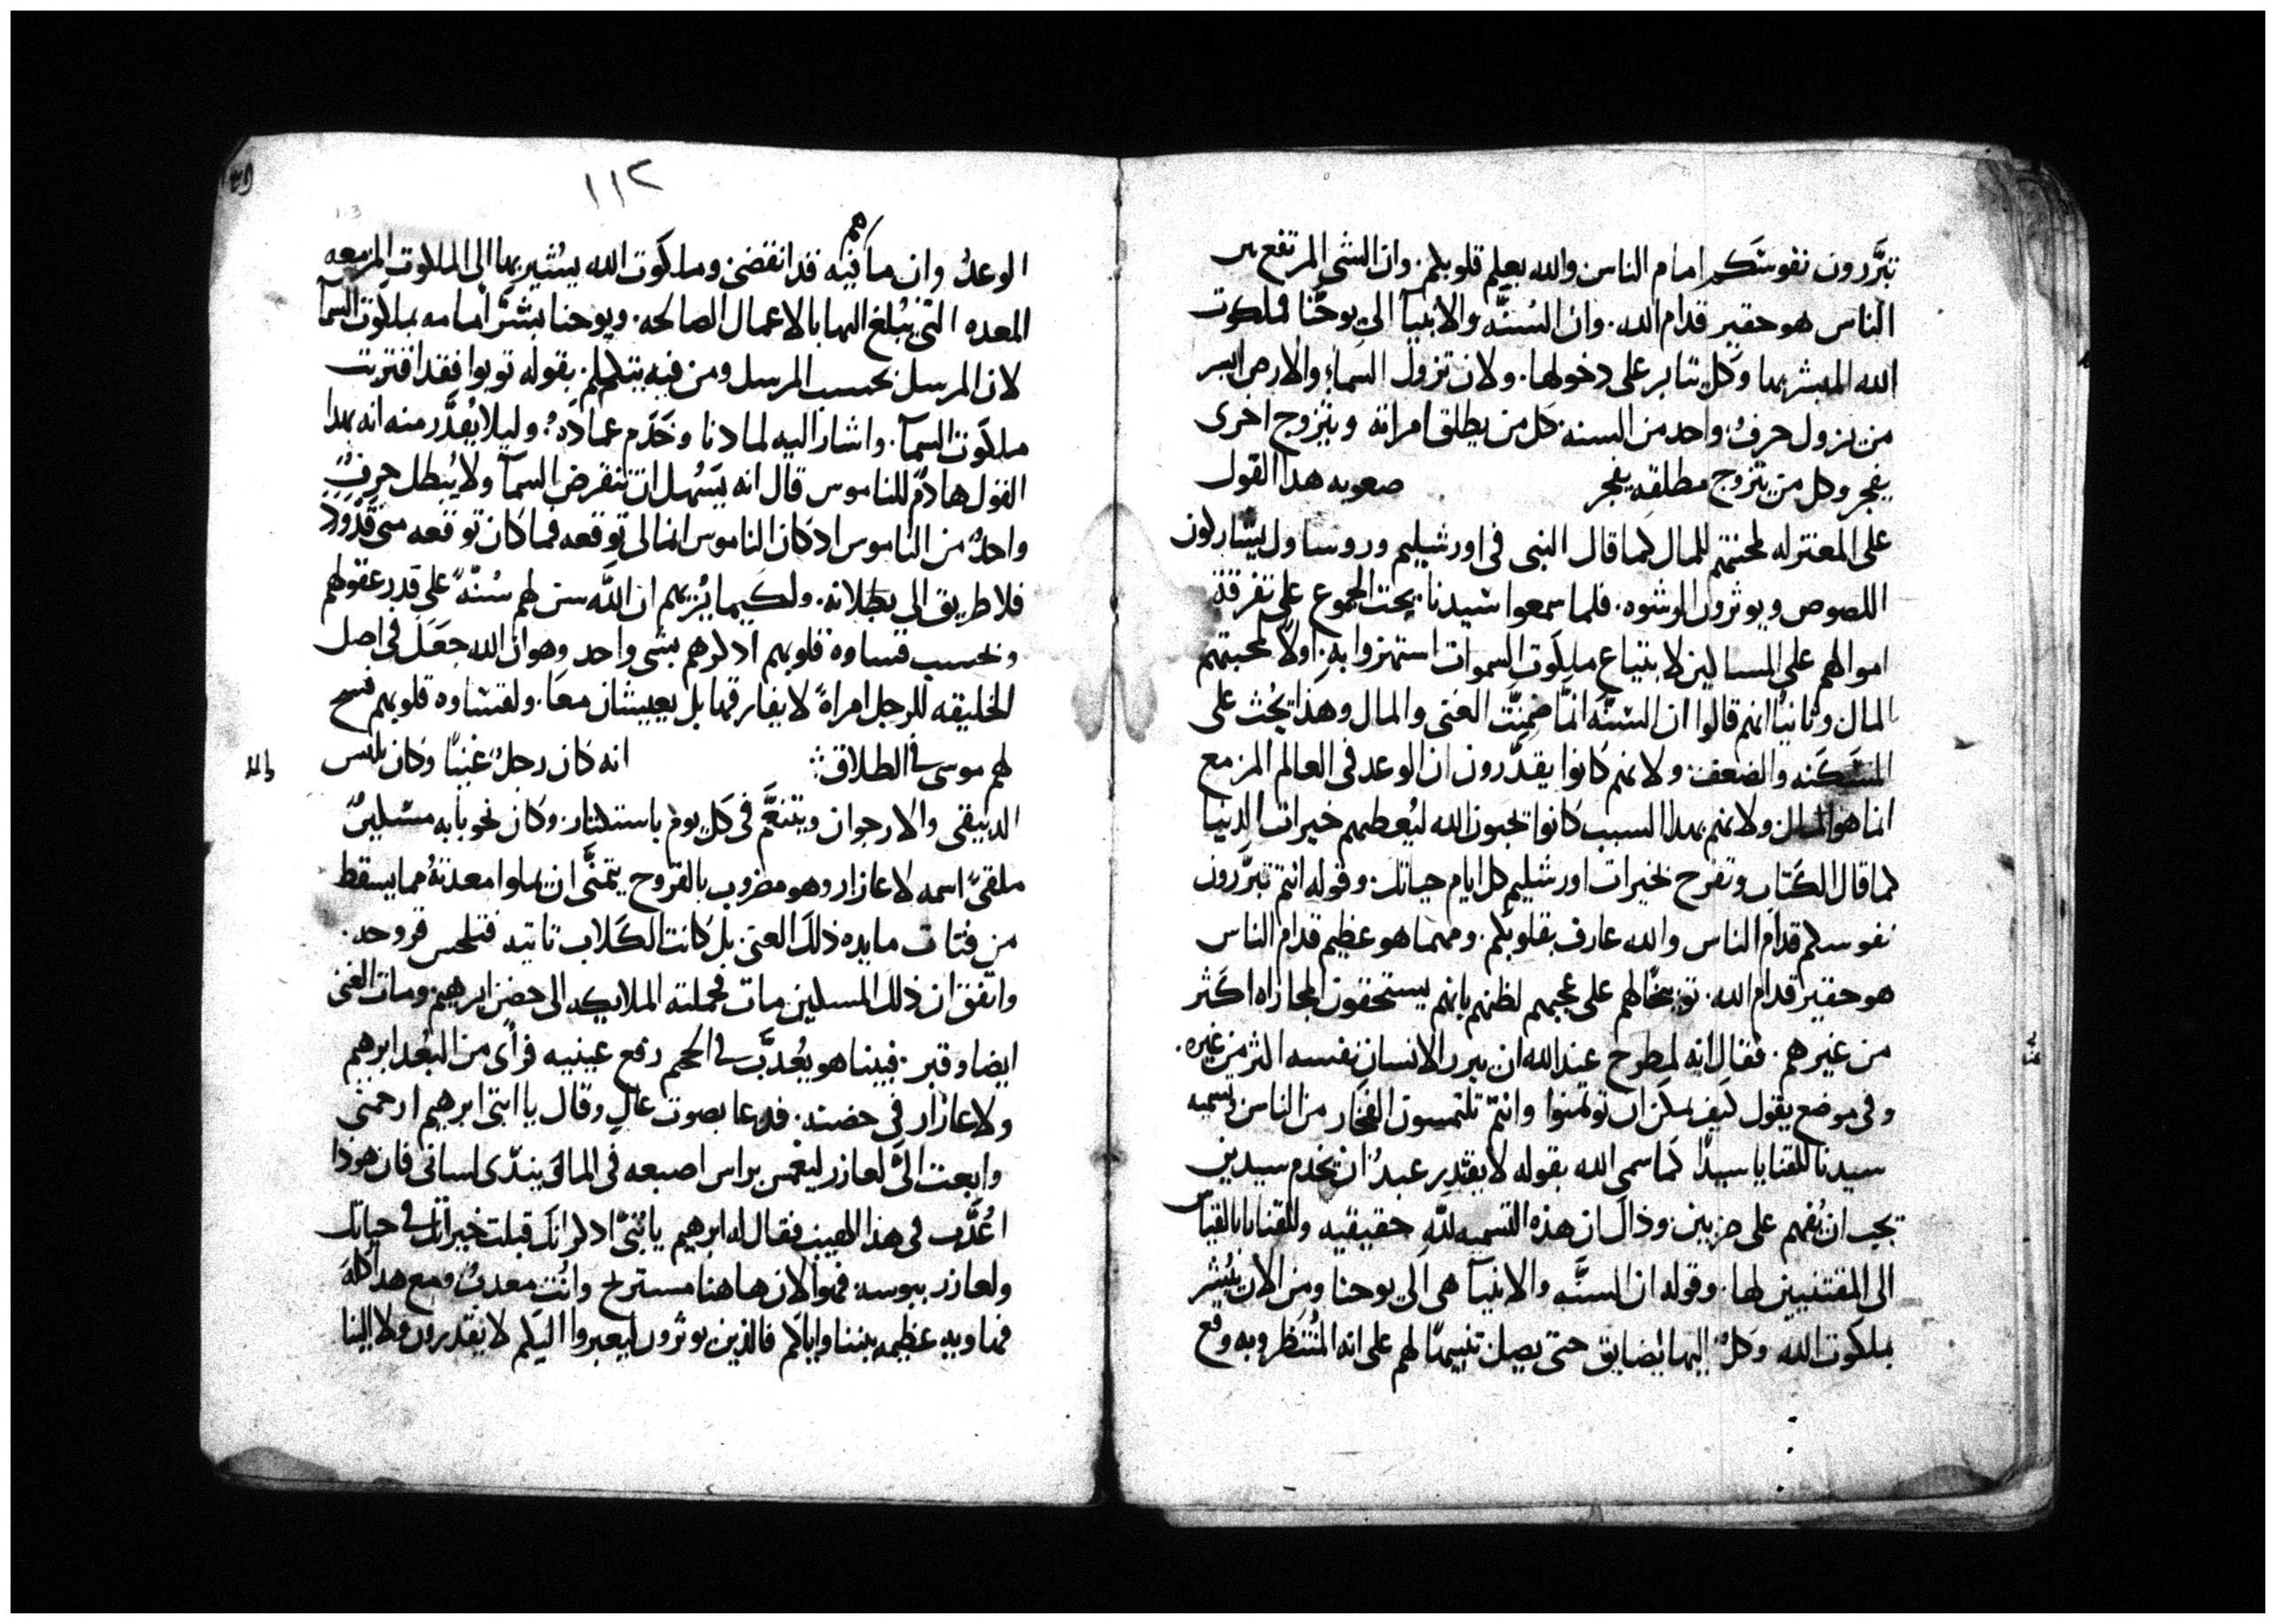 تبَّررون نفوسَكم امام الناس والله يعلم قلوبكم. وان الشى المرتفع بين
الناس هو حقير قدام الله. وان السُنَّه والانبيآ الى يوحَّنا فملكوت
الله المبشر بها وكل تتابر على دخولها. ولان تزول السماء والارض ايسر
من يزول حرفُ واحد من السنه كل من يطلق امراته ويتزوج اخرى
يفجر وكل من يتزوج مطلقه يفجر صعوبه هدا القول
على المعتزله لمحبتهم للمال كما قال النبى فى اورشيليم وروساوك يشاركون
اللصوص ويوثرون الرشوه. فلما سمعوا سيدنا يحث الجموع على تفرقة
اموالهم على المساكين لابتياع ملكوت السموات استهزوا به. اولًا لمحبتهم
المال وثانيًا انهم قالوا ان السنَّه انما ضمِنَت الغنى والمال وهذا يُحث على
المسَكَنه والضعف ولانهم كانوا يقدَّرون ان الوعد فى العالم المزمع
انما هو المال ولانهم بهدا السبب كانوا يحبون الله ليُعطيهم خيرات الدنيا
كما قال الكتاب وتفرح بخيرات اورشليم كل ايام حياتك. وقوله انتم تبرَّرون
نفوسكم قدام الناس والله عارف بقلوبكم. ومهما هو عظيم قدام الناس
هو حقير قدام الله. توبيخًا لهم على عجبهم لظنهم بانهم يستحقون المجازاه اكثر
من غيرهم. فقال انه لمطروح عند الله ان يبرر الانسان نفسه اكثر من غيره.
وفى موضع يقول كيف يمكن ان تومنوا وانتم تلتمسون الفخار من الناس تسميه
سيدنا للقنايا سيدًّا كما سمى الله بقوله لا يقتدر عبدُ ان يخدم سيدين
يجب ان يُفهم على ضربين وذاك ان هذه التسميه للَّه حقيقيه وللقنايا بالقياس
الى المقتنيين لها. وقوله ان السنَّه والانبيآ هى الى يوحنا ومن الان يُبشر
بملكوت الله وكلُ اليها يُضايق حتى يصل تنبيهًا لهم على انه المُنتظر وبه وقع
١١٢
الوعدُ وان ما فيه قد انقضى وملكوت الله يشير بها الى الملكوت المزمعه
المعده التى يُبلغ اليها بالاعمال الصالحه. ويوحنا بشَّر امامه بملكوت السمآ
لان المرسل بحسب المرسل ومن فيه يتكلم بقوله توبوا فقد اقتربت
ملكوت السمآ. واشار اليه لما دنا وخَدَم عمادَهُ. وليلا يُقدَّر منه انه بهدا
القول هادمُ للناموس قال انه يَسَهل ان تنقرض السمآ ولا يُبطل حرفُ
واحدُ من الناموس اد كان الناموس انما الى توقعه فما كان توقعه متى قد ورد
فلا طريق الى بطلانه. ولكيما يُريهم ان اللَّه سن لهم سُنَّهً على قدر عقولهم
وبحسب قساوة قلوبهم ادكرهم بشى واحد وهو ان الله جعَل فى اصل
الخليقه للرجل امراةً لا يفارقها بل يعيشان معًا. ولقساوه قلوبهم فسح
لهم موسى فى الطلاق ؞ انه كان رجلُ غنيًا وكان يلبس
الدبيقى والارجوان ويتنعَّم فى كل يوم باستكثار. وكان نحو بابه مسكينُ
ملقىً اسمه لاعازار وهو مضروب بالقروح يتمنَّى ان يملوا معدتهُ مما يسقط
من فتات مايده ذلك الغنى. بل كانت الكلاب تاتيه فتلحس قروحه.
واتفق ان ذلك المسكين مات فحملته الملايكه الى حضن ابرهيم ومات الغنى
ايضا وقبر. فبينا هو يُعدَّب فى الجحم رفع عينيه فرأى من البُعد ابرهيم
ولاعازار فى حضنه. فدعا بصوت عالٍ وقال يا ابتى ابرهيم ارحمنى
وابعث الىَّ لعازر ليغمس براس اصبعه فى الما لكى يندّى لسانى فان هودا
اُعدَّب فى هذا اللهيب فقال له ابرهيم يا بُنىّ ادكر انك قبلت خيراتك فى حياتك
ولعازر ببوسه فهو الان هاهنا مستريح وانت معدبُ ومع هدا كله
فهاويه عظيمه بيننا واياكم فالذين يوثرون ليعبروا اليكم لا يقدرون ولا الينا